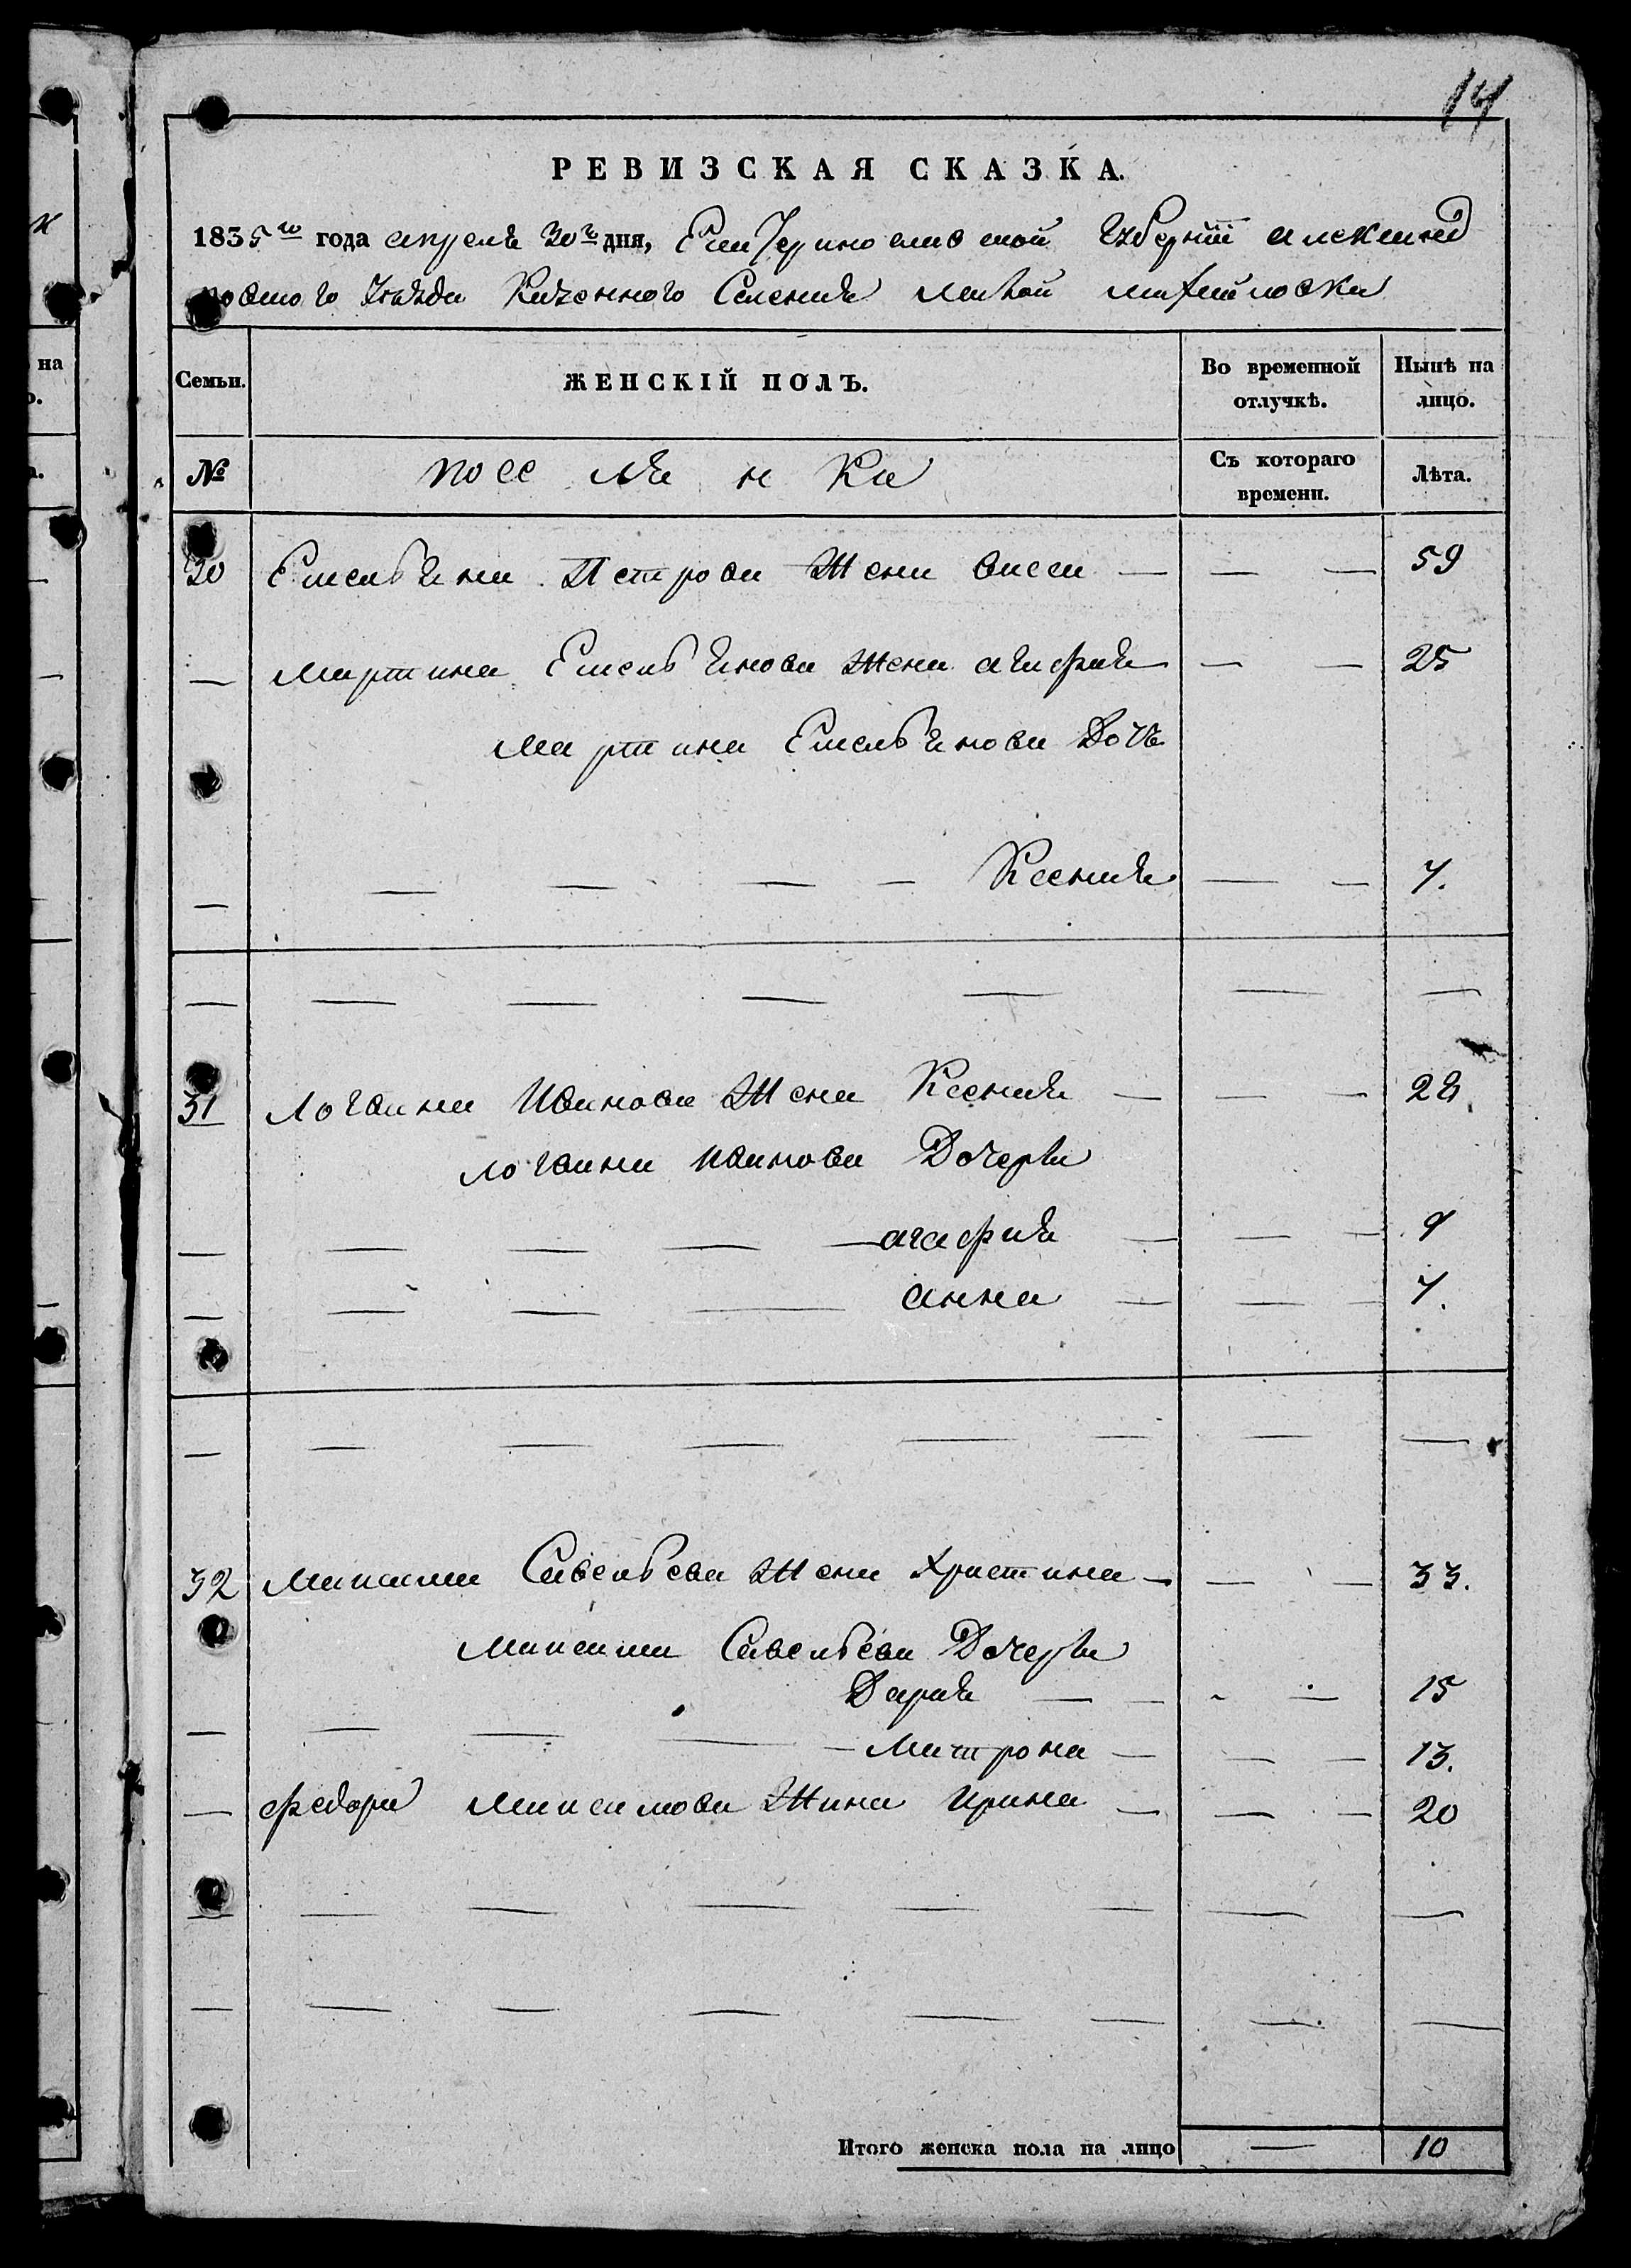 14
РЕВИЗСКАЯ СКАЗКА.
1835го года апреля 30го дня, Екатеринославской Губернии Александ
ровского Уезда Казенного Селения Малой Михайловки
Семьи.
ЖЕНСКІЙ ПОЛЪ.
Во временной отлучкѣ.
Нынѣ на лицо.
№
поселянки
Съ котораго времени.
Лѣта.
30 Емельяна Петрова Жена васса — — — 59
— Мартина Емельянова Жена агафия — — 25
Мартина Емельянова Дочь
— — — — — Ксения — — 7.
— — — — — — —
31 Логвина Иванова Жена Ксения — — — 28
Логвина Иванова Дочери
— — — — — агафия — — — 9
— — — — анна — — — 7.
— — — — — — — —
32 Максима Савельева Жена Христина — — — 33.
Максима Савельева Дочери
Дария — — - — 15
— — — — — Матрона — — — 13.
— федора Максимова Жина Ирина — — — 20
— — — — — — — —
— — — — — — — —
Итого женска пола на лицо — 10
на